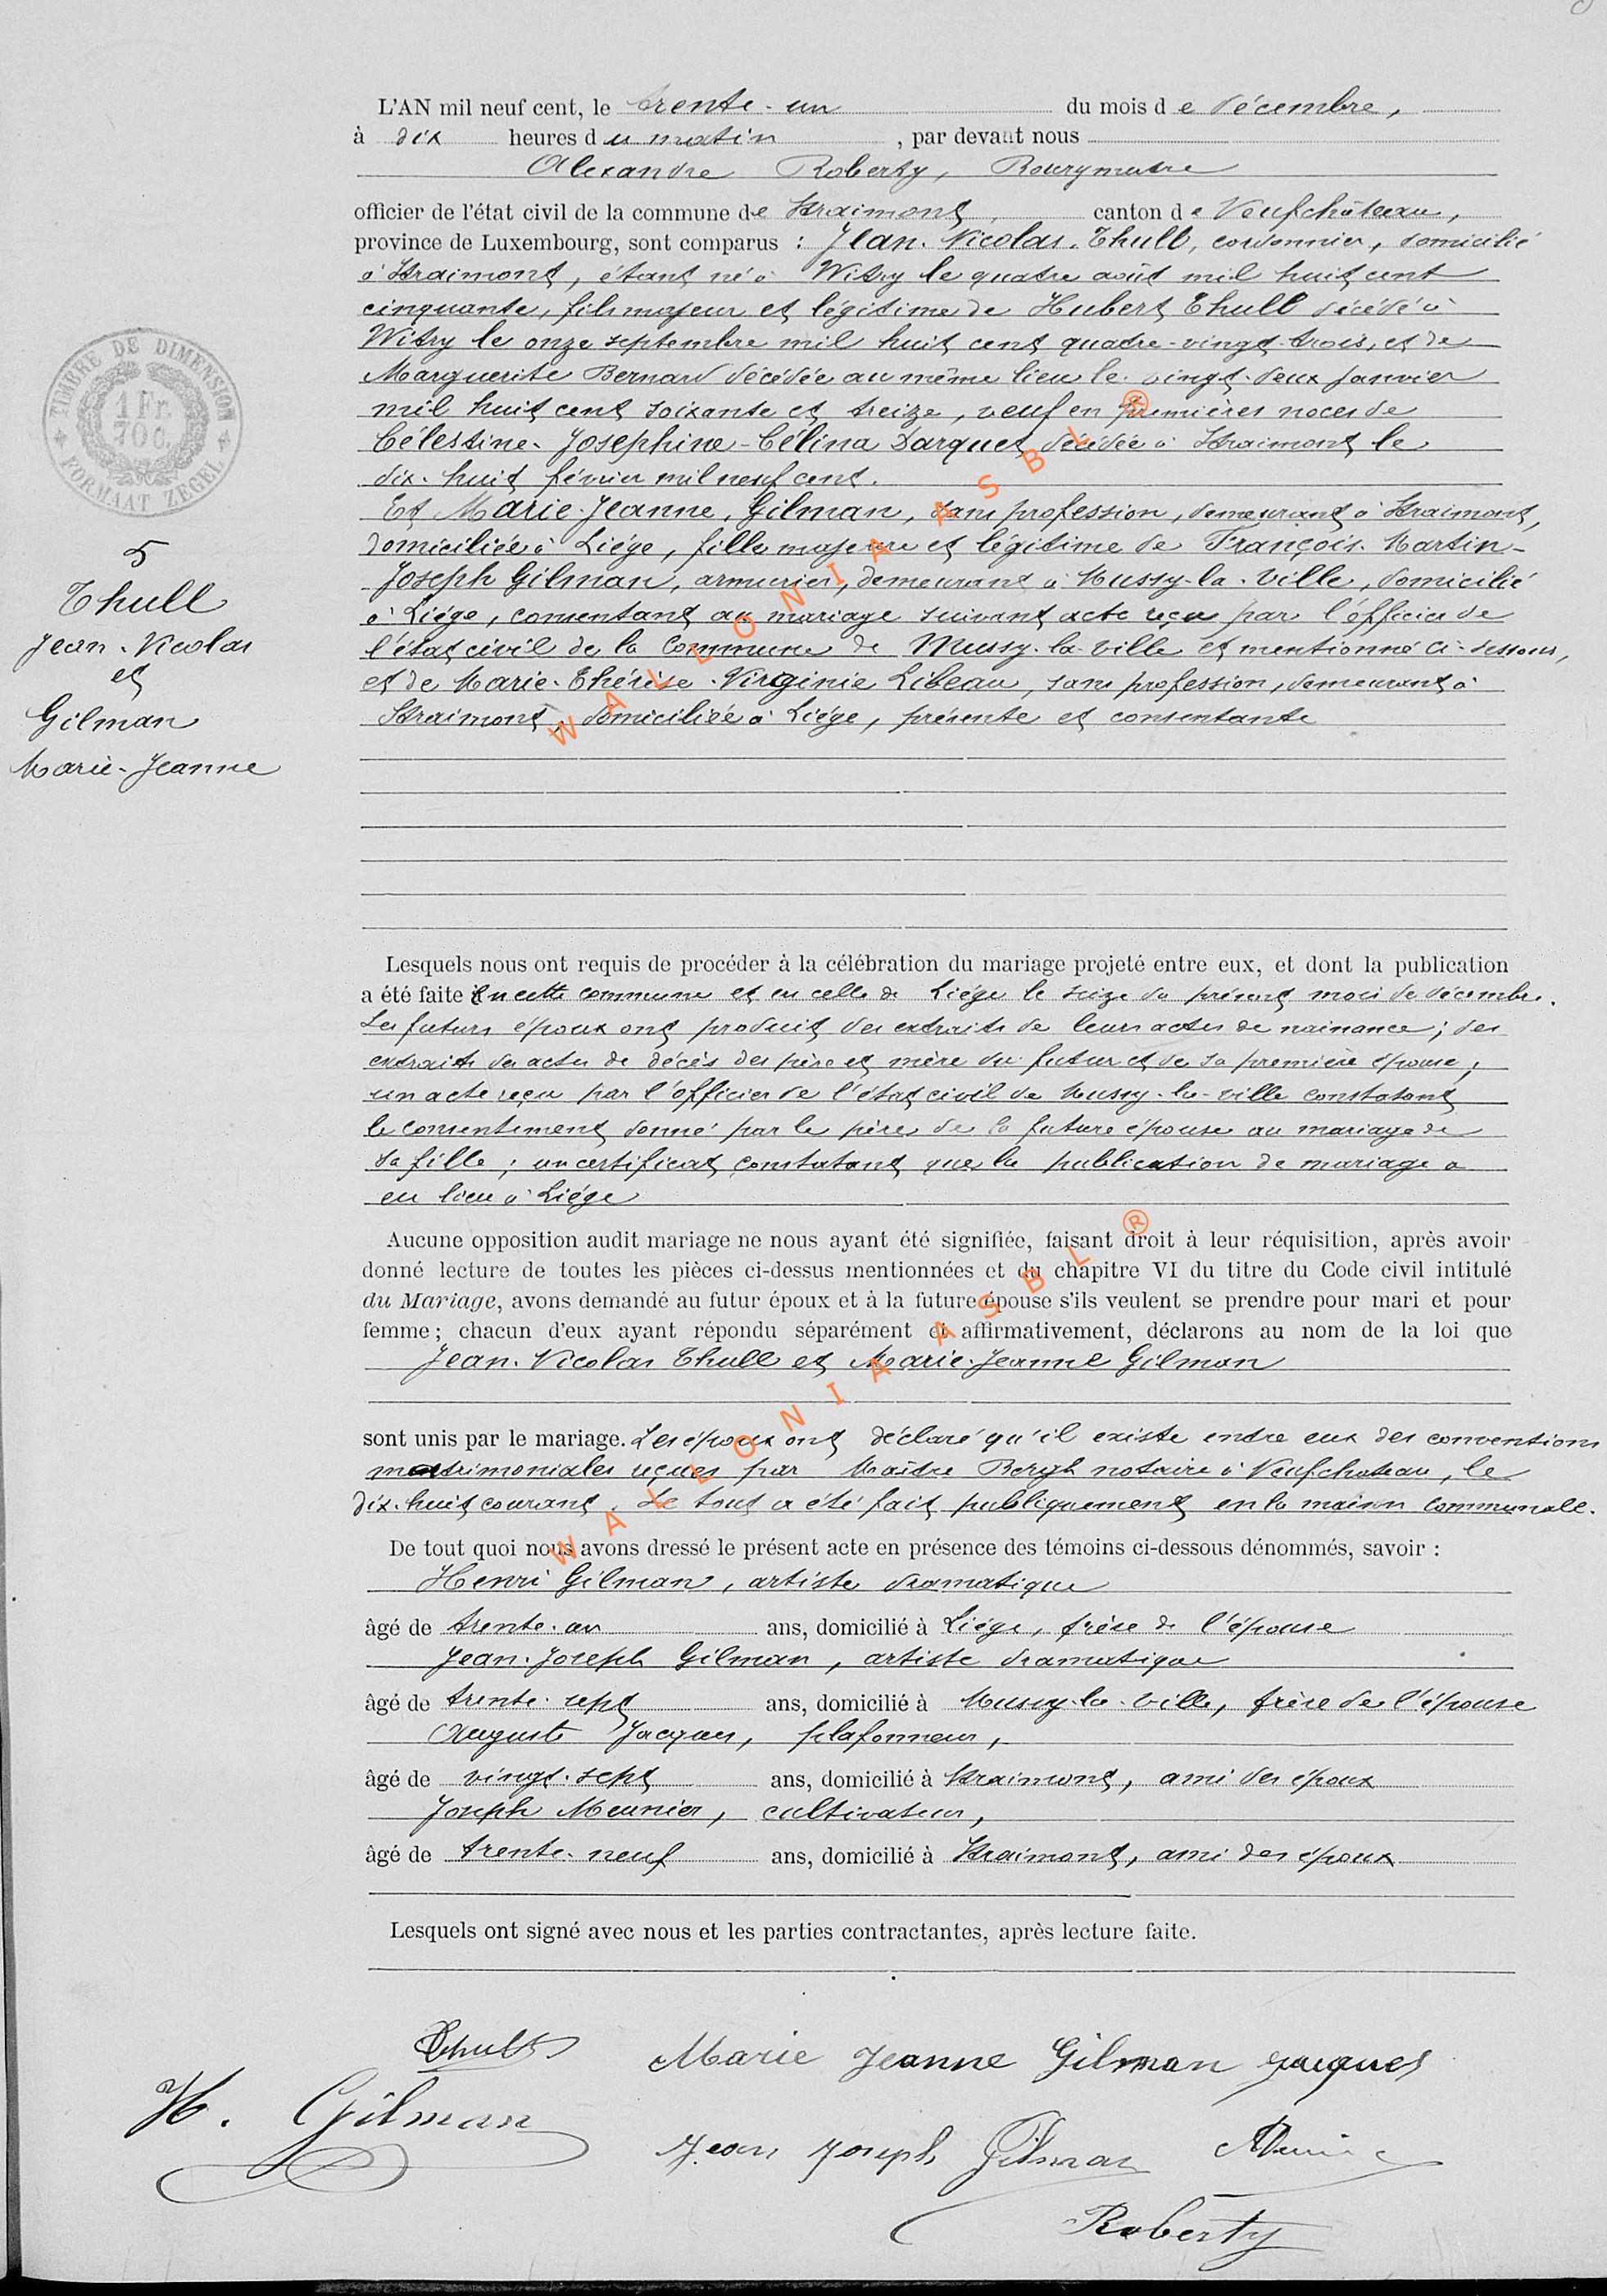 L'AN mil neuf cent, le trente-un du mois de décembre,
à dix heures du matin, par devant nous
Alexandre Roberty, Bourgmestre
officier de l'état civil de la commune de Straimont, canton de Neufchâteau,
province de Luxembourg, sont comparus : Jean-Nicolas Thull, cordonnier, domicilié
à Straimont, étant né à Witry le quatre août mil huit cent
cinquante, fils majeur et légitime de Hubert Thull décédé à
Witry le onze septembre mil huit cent quatre-vingt-trois, et de
Marguerite Bernard décédée au même lieu le vingt-deux janvier
mil huit cent soixante et treize, veuf en premières noces de
Célestine-Josephine-Célina Darquet décédée à Straimont le
dix-huit février mil neuf cent.
Et Marie-Jeanne Gilman, sans profession, demeurant à Straimont,
domiciliée à Liége, fille majeure et légitime de François-Martin-
Joseph Gilman, armurier, demeurant à Mussy-la-Ville, domicilié
à Liége, consentant au mariage suivant acte reçu par l'officier de
l'état civil de la Commune de Mussy-la-ville et mentionné ci-dessous,
et de Marie-Thérèse-Virginie Libeau, sans profession, demeurant à
Straimont, domiciliée à Liége, présente et consentante
TIMBRE DE DIMENSION
1 Fr.
70 C.
FORMAAT ZEGEL
5
Thull
Jean-Nicolas
et
Gilman
Marie-Jeanne
Lesquels nous ont requis de procéder à la célébration du mariage projeté entre eux, et dont la publication
a été faite en cette commune et en celle de Liége le seize du présent mois de décembre.
Les futurs époux ont produit des extraits de leurs actes de naissance ; des
extraits des actes de décès des père et mère du futur et de sa première épouse ;
un acte reçu par l'officier de l'état civil de Mussy-la-ville constatant
le consentement donné par le père de la future épouse au mariage de
sa fille ; un certificat constatant que la publication de mariage a
eu lieu à Liége
Aucune opposition audit mariage ne nous ayant été signifiée, faisant droit à leur réquisition, après avoir
donné lecture de toutes les pièces ci-dessus mentionnées et du chapitre VI du titre du Code civil intitulé
du Mariage, avons demandé au futur époux et à la future épouse s'ils veulent se prendre pour mari et pour
femme ; chacun d'eux ayant répondu séparément et affirmativement, déclarons au nom de la loi que
Jean-Nicolas Thull et Marie-Jeanne Gilman
sont unis par le mariage. Les époux ont déclaré qu'il existe entre eux des conventions
matrimoniales reçues par Maître Bergh notaire à Neufchateau, le
dix-huit courant. Le tout a été fait publiquement en la maison communale.
De tout quoi nous avons dressé le présent acte en présence des témoins ci-dessous dénommés, savoir :
Henri Gilman, artiste dramatique
âgé de trente-un ans, domicilié à Liége, frère de l'épouse
Jean-Joseph Gilman, artiste dramatique
âgé de trente-sept ans, domicilié à Mussy-la-ville, frère de l'épouse
Auguste Jacques, plafonneur,
âgé de vingt-sept ans, domicilié à Straimont, ami des époux
Joseph Meunier, cultivateur,
âgé de trente-neuf ans, domicilié à Straimont, ami des époux
Lesquels ont signé avec nous et les parties contractantes, après lecture faite.
Thull Marie Jeanne Gilman Jacques
H. Gilman
Jean Joseph Gilman
Roberty
WALLONIA ASBL ®
WALLONIA ASBL ®